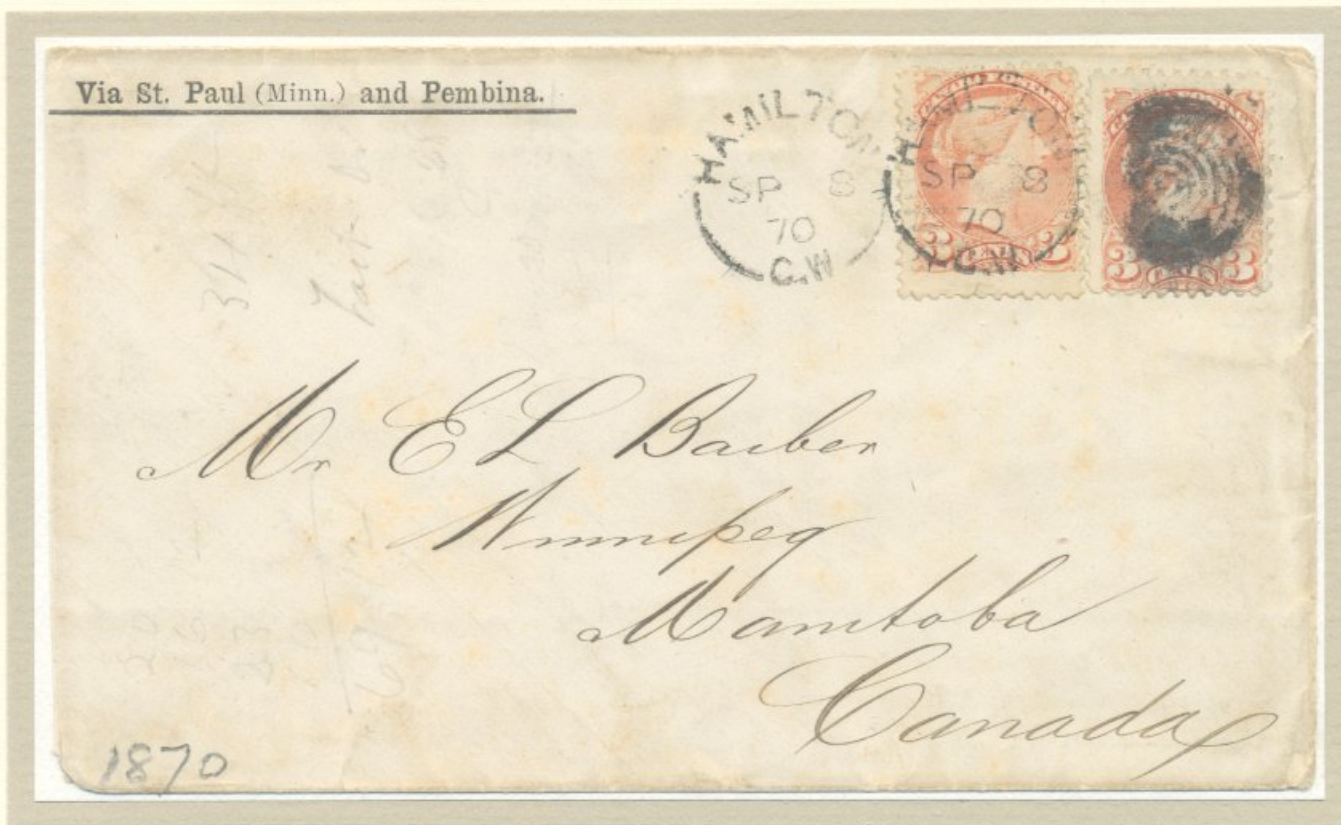 Via St. Paul (Minn.) and Pembina.
HAMILTON
SP 8
70
C.W
HAMILTON
SP 8
70
C.W
3 CENTS 3
3 CENTS 3
Mr E L Barber
Winnipeg
Manitoba
Canada
1870